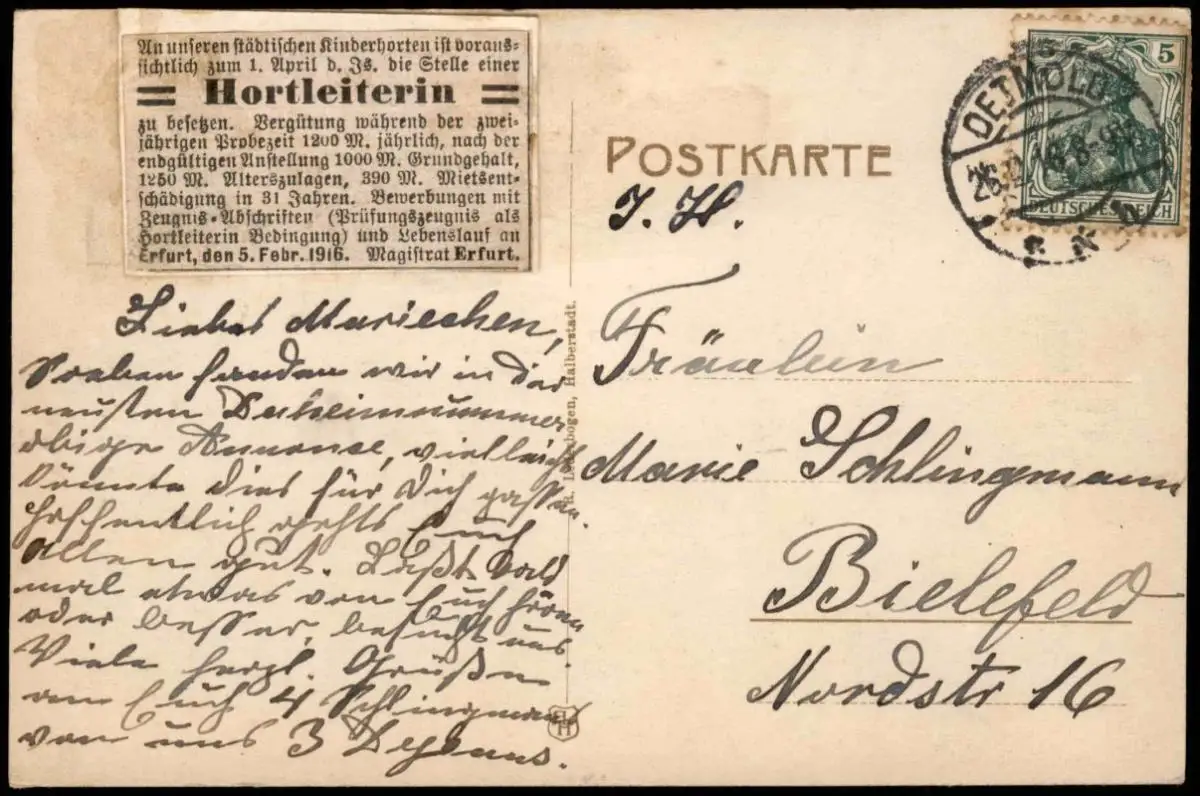 An unseren städtischen Kinderhorten ist voraus-
sichtlich zum 1. April d. Js. die Stelle einer
= Hortleiterin =
zu besetzen. Vergütung während der zwei-
jährigen Probezeit 1200 M. jährlich, nach der
endgültigen Anstellung 1000 M. Grundgehalt,
1250 M. Alterszulagen, 390 M. Mietsent-
schädigung in 31 Jahren. Bewerbungen mit
Zeugnis-Abschriften (Prüfungszeugnis als
Hortleiterin Bedingung) und Lebenslauf an
Erfurt, den 5. Febr. 1916. Magistrat Erfurt.
Liebes Mariechen,
Soeben fanden wir in der
neusten Daheimnummer
obige Annonse, vielleicht
könnte dies für Dich passen.
Hoffentlich gehts Euch
allen gut. Laßt bald
mal etwas von Euch hören
oder besser, besucht uns.
Viele herzl. Grüßen
an Euch 4 Schlingmanns
von uns 3
Halberstadt.
POSTKARTE
J. H.
Fräulein
Marie Schlingmann
Bielefeld
Nordstr 16
DETMOLD
5
DEUTSCHES REICH